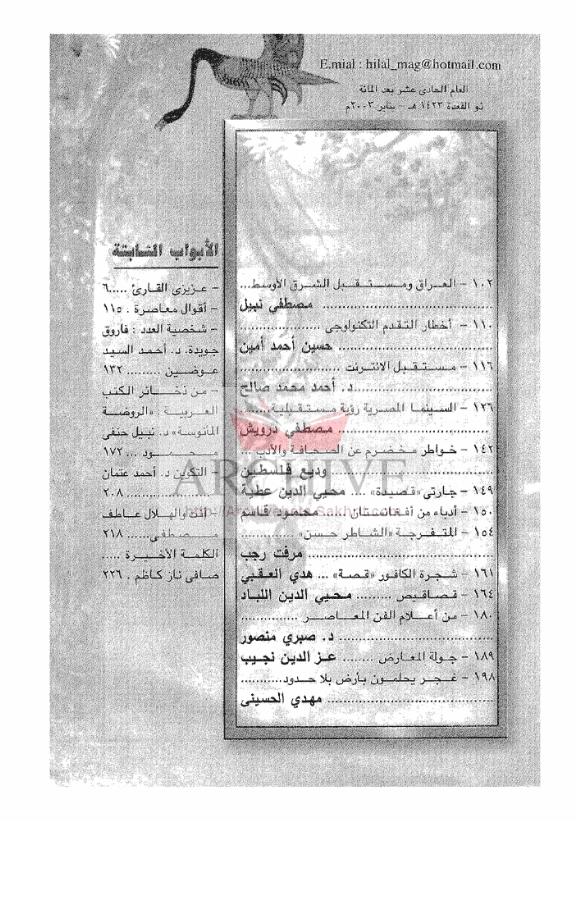 E.mial : hilal_mag@hotmail.com
العام الحادى عشر بعد المائة
ذو القعدة ١٤٢٣ هـ - يناير ٢٠٠٣م
١٠٢ - العراق ومستقبل الشرق الأوسط...
................ مصطفى نبيل
١١٠ - أخطار التقدم التكنولوجى ................
................ حسين أحمد أمين
١١٦ - مستقبل الانترنت ................
................ د. أحمد محمد صالح
١٢٦ - السينما المصرية رؤية مستقبلية......
................ مصطفى درويش
١٤٢ - خواطر مخضرم عن الصحافة والأدب ...
................ وديع فلسطين
١٤٩ - جارتى «قصيدة» .... محيي الدين عطية
١٥٠ - أدباء من أفغانستان ... محمود قاسم
١٥٤ - المتفرجة «الشاطر حسن» ............
................ مرفت رجب
١٦١ - شجرة الكافور «قصة» ... هدي العقبي
١٦٤ - قصاقيص ......... محيي الدين اللباد
١٨٠ - من أعلام الفن المعاصر ...............
................ د. صبري منصور
١٨٩ - جولة المعارض ........ عز الدين نجيب
١٩٨ - غجر يحلمون بأرض بلا حدود...........
................ مهدي الحسينى
الأبواب الثابتة
- عزيزى القارئ .....٦
- أقوال معاصرة . ١١٥
- شخصية العدد : فاروق
جويدة. د. أحمد السيد
عوضين ......... ١٣٢
- من ذخائر الكتب
العربية : «الروضة
المانوسة» د. نبيل حنفى
محمود ... ١٧٢
- التكوين د. أحمد عتمان
................٢٠٨
- أنت والهلال عاطف
مصطفى..... ٢١٨
- الكلمة الأخيرة .....
صافى ناز كاظم . ٢٢٦
ARCHIVE